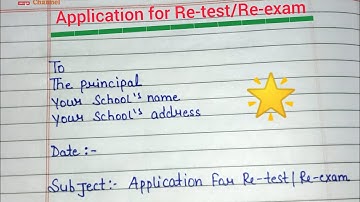 Channel
Application for Re-test/Re-exam
To
The principal
Your School's name
Your School's address
Date :-
Subject:- Application For Re-test/Re-exam